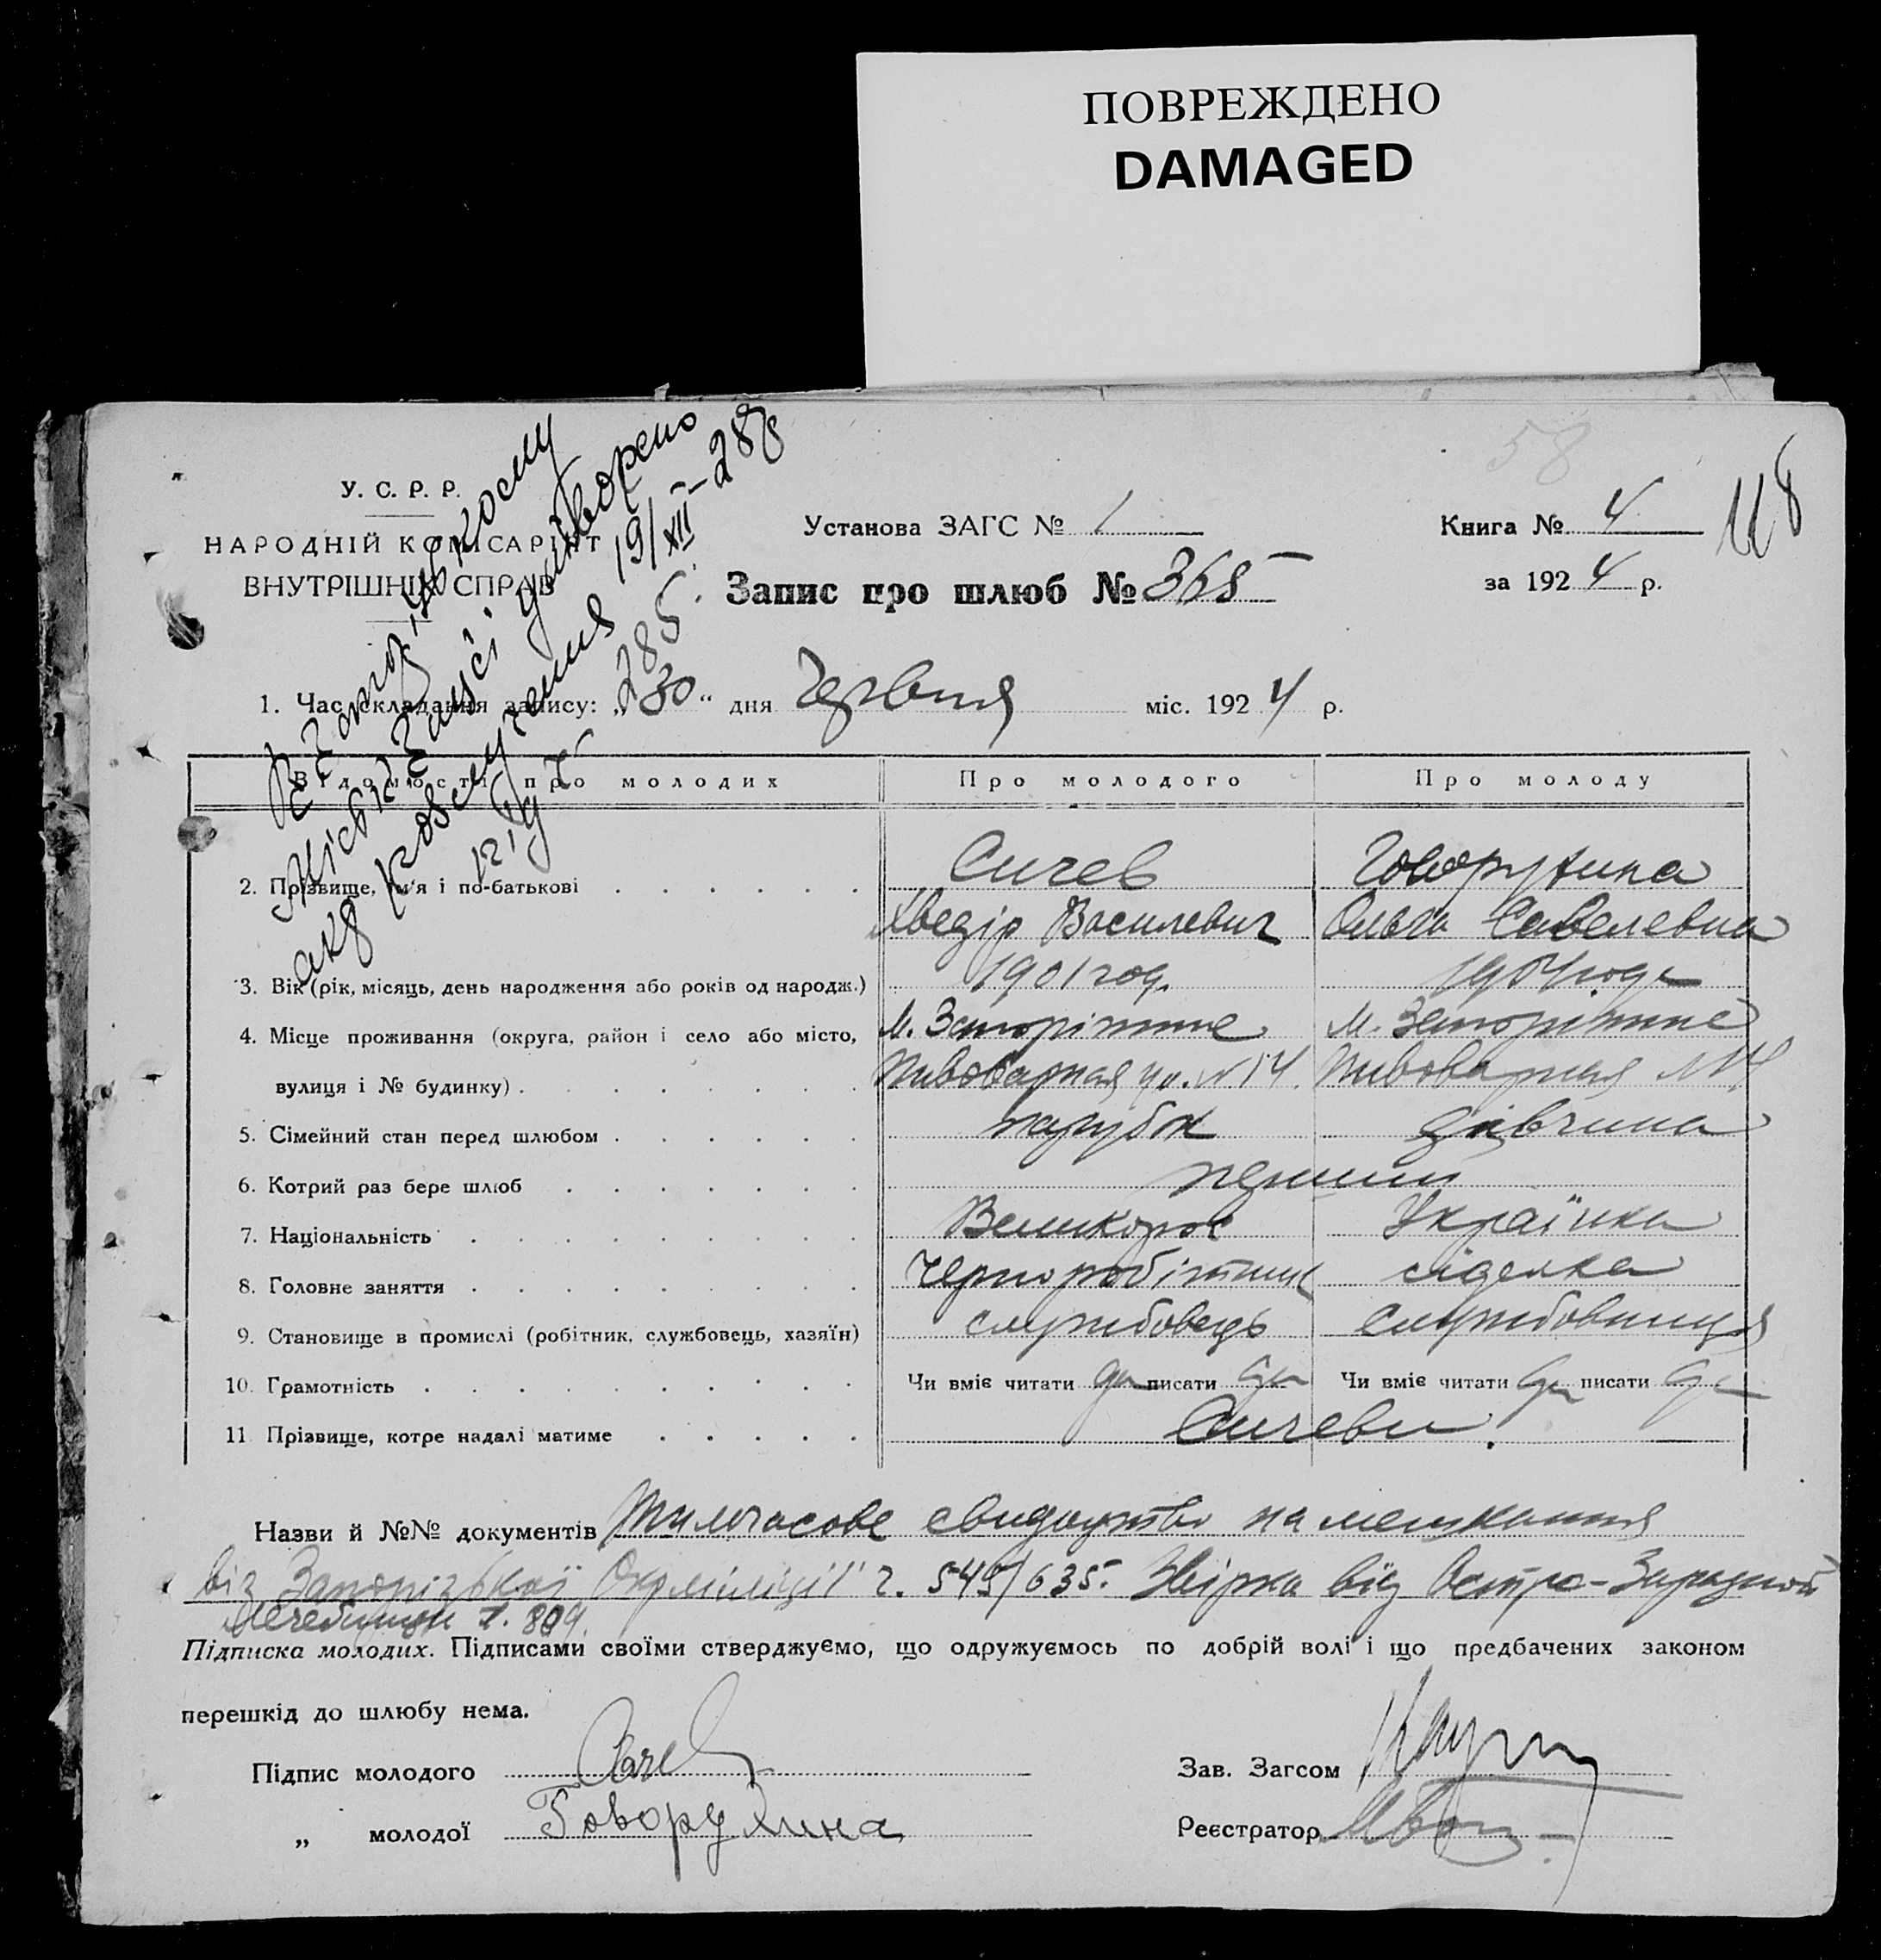 ПОВРЕЖДЕНО
DAMAGED
58
118
У. С. Р. Р.
НАРОДНІЙ КОМІСАРІЯТ
ВНУТРІШНІХ СПРАВ
Установа ЗАГС № 1
Книга № 4
за 1924 р.
Запис про шлюб № 368
В Запорізькому
Міськ Загсі утворено
акт розлучення 19/XII-28 р
під ч. 285.
1. Час складання запису: „30“ дня Червня міс. 1924 р.
Відомості про молодих Про молодого Про молоду
2. Прізвище, ім'я і по-батькові Сичев Говорухина
Хведір Василевич Ольга Савелевна
3. Вік (рік, місяць, день народження або років од народж.) 1901 год. 1904 года
4. Місце проживання (округа, район і село або місто, М. Запоріжжє М. Запоріжжє
вулиця і № будинку) Пивоварная ул. № 14. Пивоварная № 14
5. Сімейний стан перед шлюбом парубок дівчина
6. Котрий раз бере шлюб перший
7. Національність Великорос Українка
8. Головне заняття Черноробітник сіделка
9. Становище в промислі (робітник, службовець, хазяїн) службовець службовниця
10. Грамотність Чи вміє читати да писати да Чи вміє читати да писати да
11. Прізвище, котре надалі матиме Сичеви.
Назви й №№ документів Тимчасове свидоцтво на мешкання
від Запорізької Окрміліції ч. 549/635. від Остро-Заразной
ч. 809.
Підписка молодих. Підписами своїми стверджуємо, що одружуємось по добрій волі і що предбачених законом
перешкід до шлюбу нема.
Підпис молодого Сичев
Зав. Загсом
„ молодої Говорухина
Реєстратор